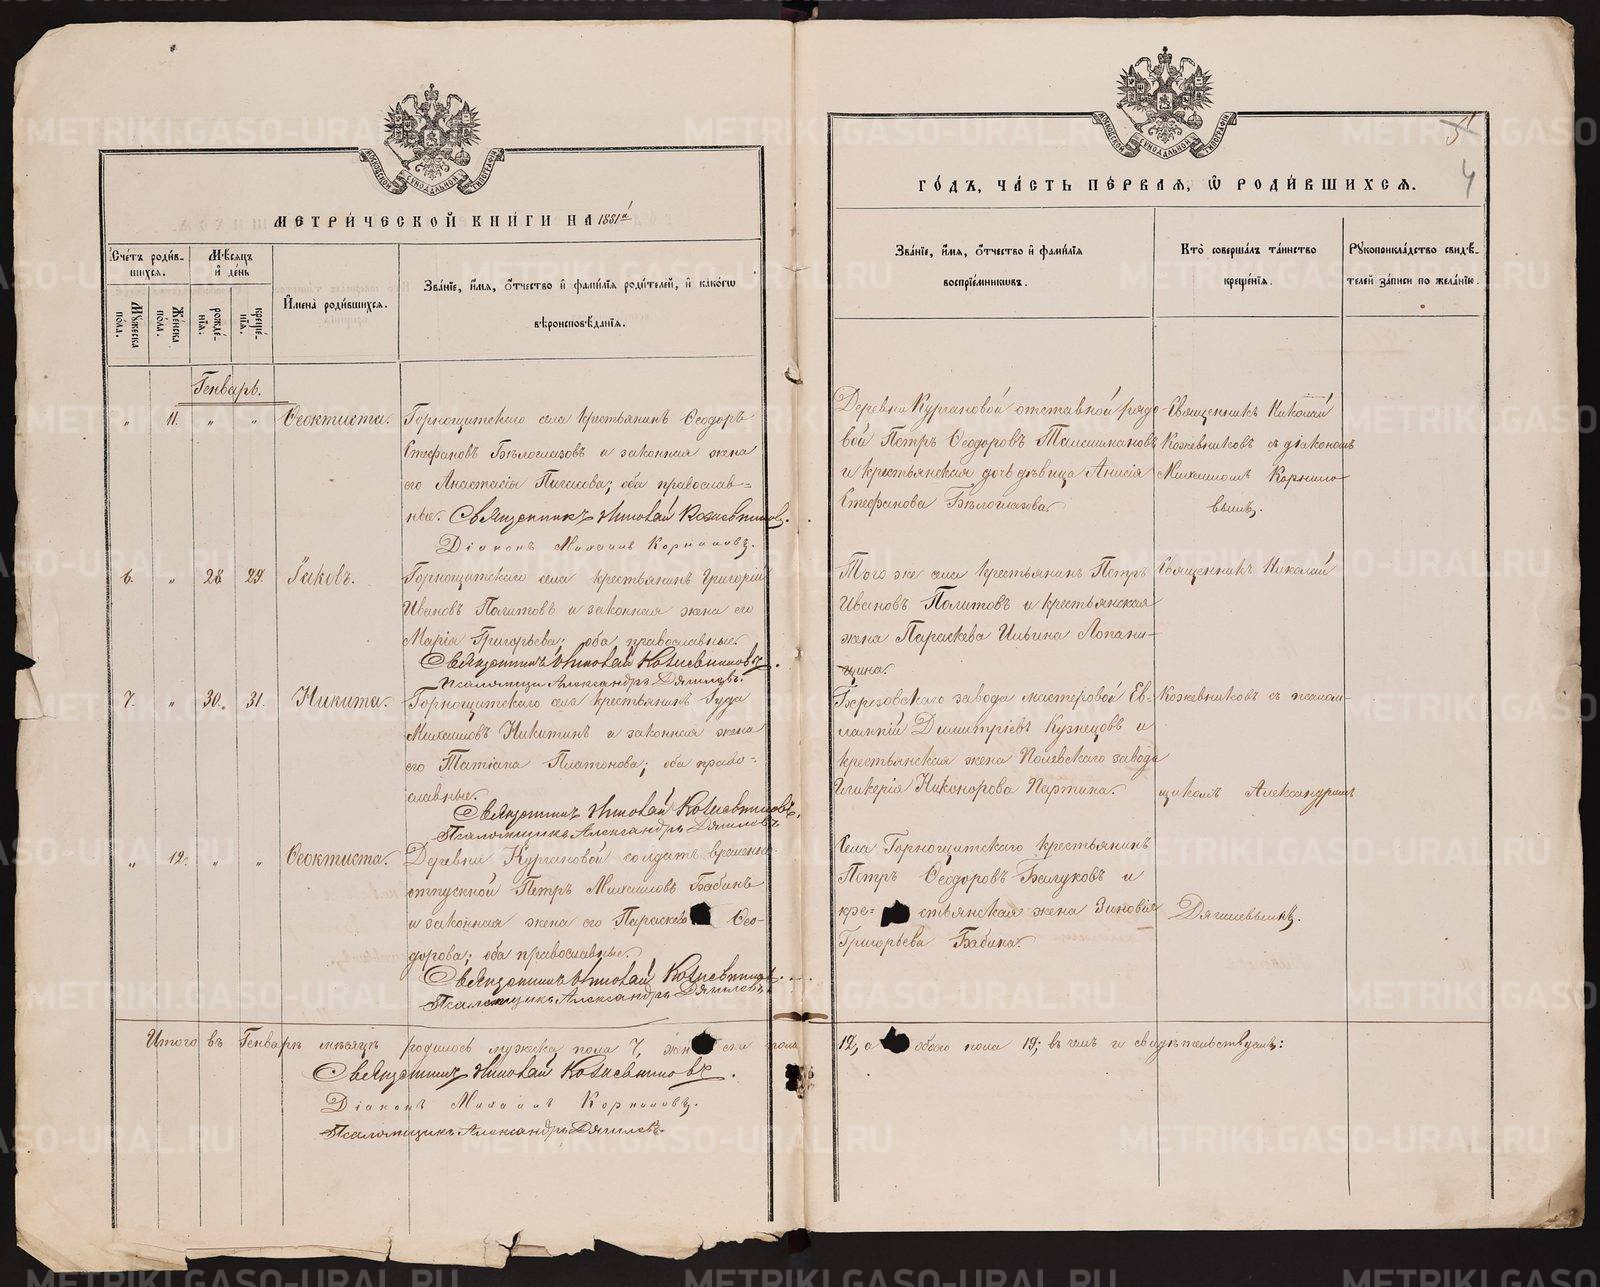 МЕТРИЧЕСКОЙ КНИГИ НА 1881й
Счетъ родив-
шихся.
Мѣсяцъ
и день
Имена родившихся.
Званіе, имя, отчество и фамилія родителей, и какого
вѣроисповѣданія.
Мужеска
пола.
Женска
пола.
рожде-
нія.
креще-
нія.
Генварь.
„ 11. „ „ Ѳеоктиста. Горнощитскаго села крестьянинъ Ѳеодоръ
Стефановъ Бѣлоглазовъ и законная жена
его Анастасія Пигасова; оба православ-
ные. Священникъ Николай Кожевниковъ.
Діаконъ Михаилъ Корниловъ.
6. „ 28 29. Іаковъ. Горнощитскаго села крестьянинъ Григорій
Ивановъ Политовъ и законная жена его
Марія Григорьева; оба православные.
Священникъ Николай Кожевниковъ.
Псаломщикъ Александръ Дягилевъ.
7. „ 30. 31. Никита. Горнощитскаго села крестьянинъ Іуда
Михаиловъ Никитинъ и законная жена
его Татіана Платонова; оба право-
славные.
Священникъ Николай Кожевниковъ.
Псаломщикъ Александръ Дягилевъ
„ 12. „ „ Ѳеоктиста. Деревни Кургановой солдатъ временно-
отпускной Петръ Михаиловъ Бабинъ
и законная жена его Параскев Ѳео-
дорова; оба православные.
Священникъ Николай Кожевниковъ.
Псаломщикъ Александръ Дягилевъ
Итого въ Генварѣ мѣсяцѣ родилось мужска пола 7, жен ска пола
Священникъ Николай Кожевниковъ.
Діаконъ Михаилъ Корниловъ.
Псаломщикъ Александръ Дягилевъ.
4
ГОДЪ, ЧАСТЬ ПЕРВАЯ, Ѡ РОДИВШИХСЯ.
Званіе, имя, отчество и фамилія
воспріемниковъ.
Кто совершалъ таинство
крещенія.
Рукоприкладство свидѣ-
телей записи по желанію.
Деревни Кургановой отставной рядо-
вой Петръ Ѳеодоровъ
и крестьянская дочь дѣвица Анисія
Стефанова Бѣлоглазова.
Священникъ Николай
Кожевниковъ съ діакономъ
Михаиломъ Корнило-
вымъ.
Того же села крестьянинъ Петръ
Ивановъ Политовъ и крестьянская
жена Параскева Ильина Лопати-
щина.
Священникъ Николай
Березовскаго завода мастеровой Ев-
лампій Димитріевъ Кузнецовъ и
крестьянская жена Полевскаго завода
Гликерія Никонорова Партина.
Кожевниковъ съ псалом-
щикомъ Александромъ
Села Горнощитскаго крестьянинъ
Петръ Ѳеодоровъ Балуковъ и
кре= стьянская жена Зиновія
Григорьева Бабина.
Дягилевымъ.
12, а обоего пола 19; въ чемъ и свидѣтельствуемъ: